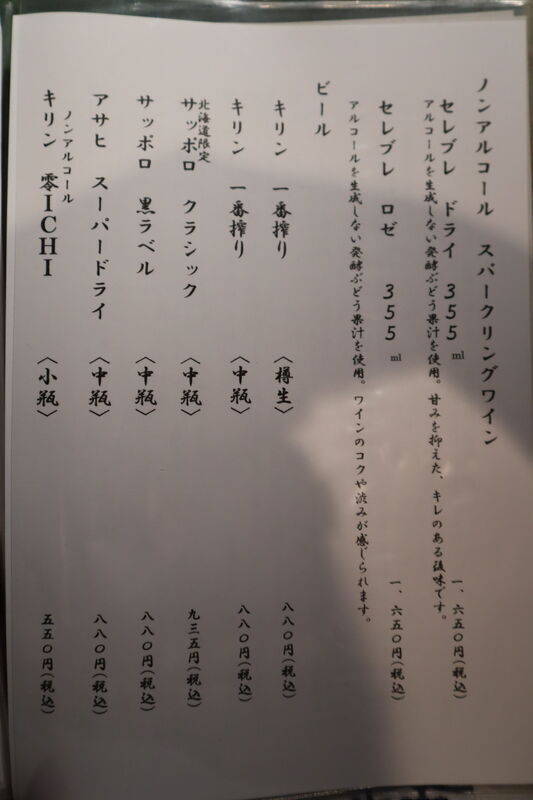 ノンアルコール スパークリングワイン
セレブレ ドライ 355ml 一、六五〇円(税込)
アルコールを生成しない発酵ぶどう果汁を使用。甘みを抑えた、キレのある後味です。
セレブレ ロゼ 355ml 一、六五〇円(税込)
アルコールを生成しない発酵ぶどう果汁を使用。ワインのコクや渋みが感じられます。
ビール
キリン 一番搾り 〈樽生〉 八八〇円(税込)
キリン 一番搾り 〈中瓶〉 八八〇円(税込)
北海道限定
サッポロ クラシック 〈中瓶〉 九三五円(税込)
サッポロ 黒ラベル 〈中瓶〉 八八〇円(税込)
アサヒ スーパードライ 〈中瓶〉 八八〇円(税込)
ノンアルコール
キリン 零ICHI 〈小瓶〉 五五〇円(税込)